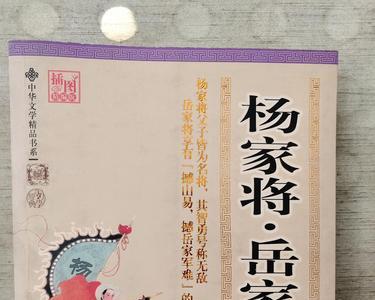 杨家将·岳家
杨家将父子皆为名将，其智勇号称无敌
岳家将享有“撼山易，撼岳家军难”的
插图
中华文学精品书系
杨